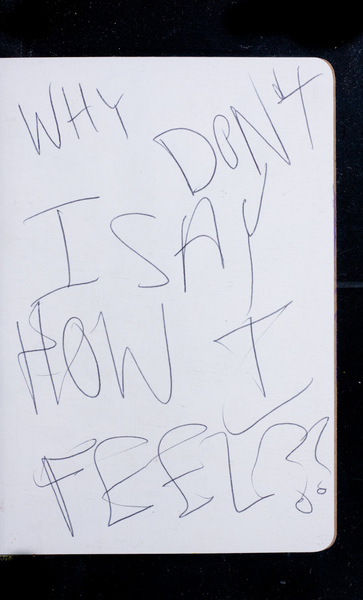 WHY DON'T
I SAY
HOW I
FEEL??